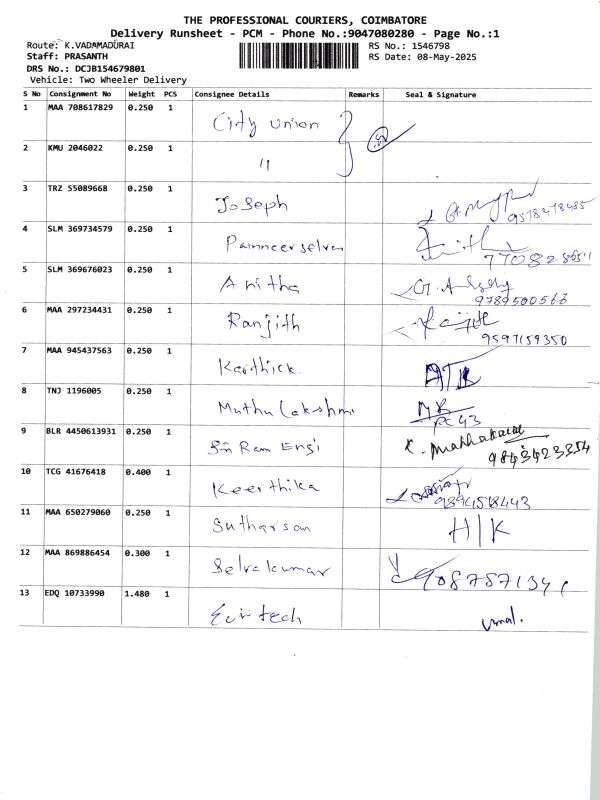 THE PROFESSIONAL COURIERS, COIMBATORE
Delivery Runsheet - PCM - Phone No.:9047080280 - Page No.:1
Route: K.VADAMADURAI
Staff: PRASANTH
DRS No.: DCJB154679801
Vehicle: Two Wheeler Delivery
RS No.: 1546798
RS Date: 08-May-2025
S No Consignment No Weight PCS Consignee Details Remarks Seal & Signature
1 MAA 708617829 0.250 1 City Union
2 KMU 2046022 0.250 1 "
3 TRZ 55089668 0.250 1 Joseph 9578478485
4 SLM 369734579 0.250 1 Pannneerselvam
5 SLM 369676023 0.250 1 Anitha 9789500566
6 MAA 297234431 0.250 1 Ranjith 9597159350
7 MAA 945437563 0.250 1 Karthick
8 TNJ 1196005 0.250 1 Muthu Lakshmi
9 BLR 4450613931 0.250 1 Sri Ram Engi 9843423354
10 TCG 41676418 0.400 1 Keerthika 9894518443
11 MAA 650279060 0.250 1 Sutharsan H/K
12 MAA 869886454 0.300 1 Selvakumar
13 EDQ 10733990 1.480 1